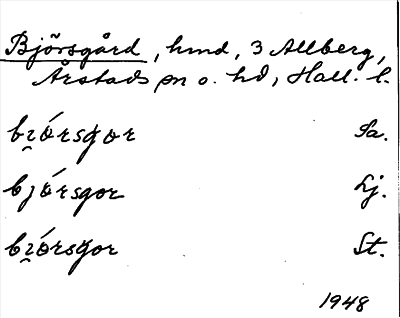 Björsgård, hmd, 3 Allberg,
Årstads sn o. hd, Hall. l.
bi̯órsgor Sa.
bjórsgor Lj.
bi̯órsgor St.
1948